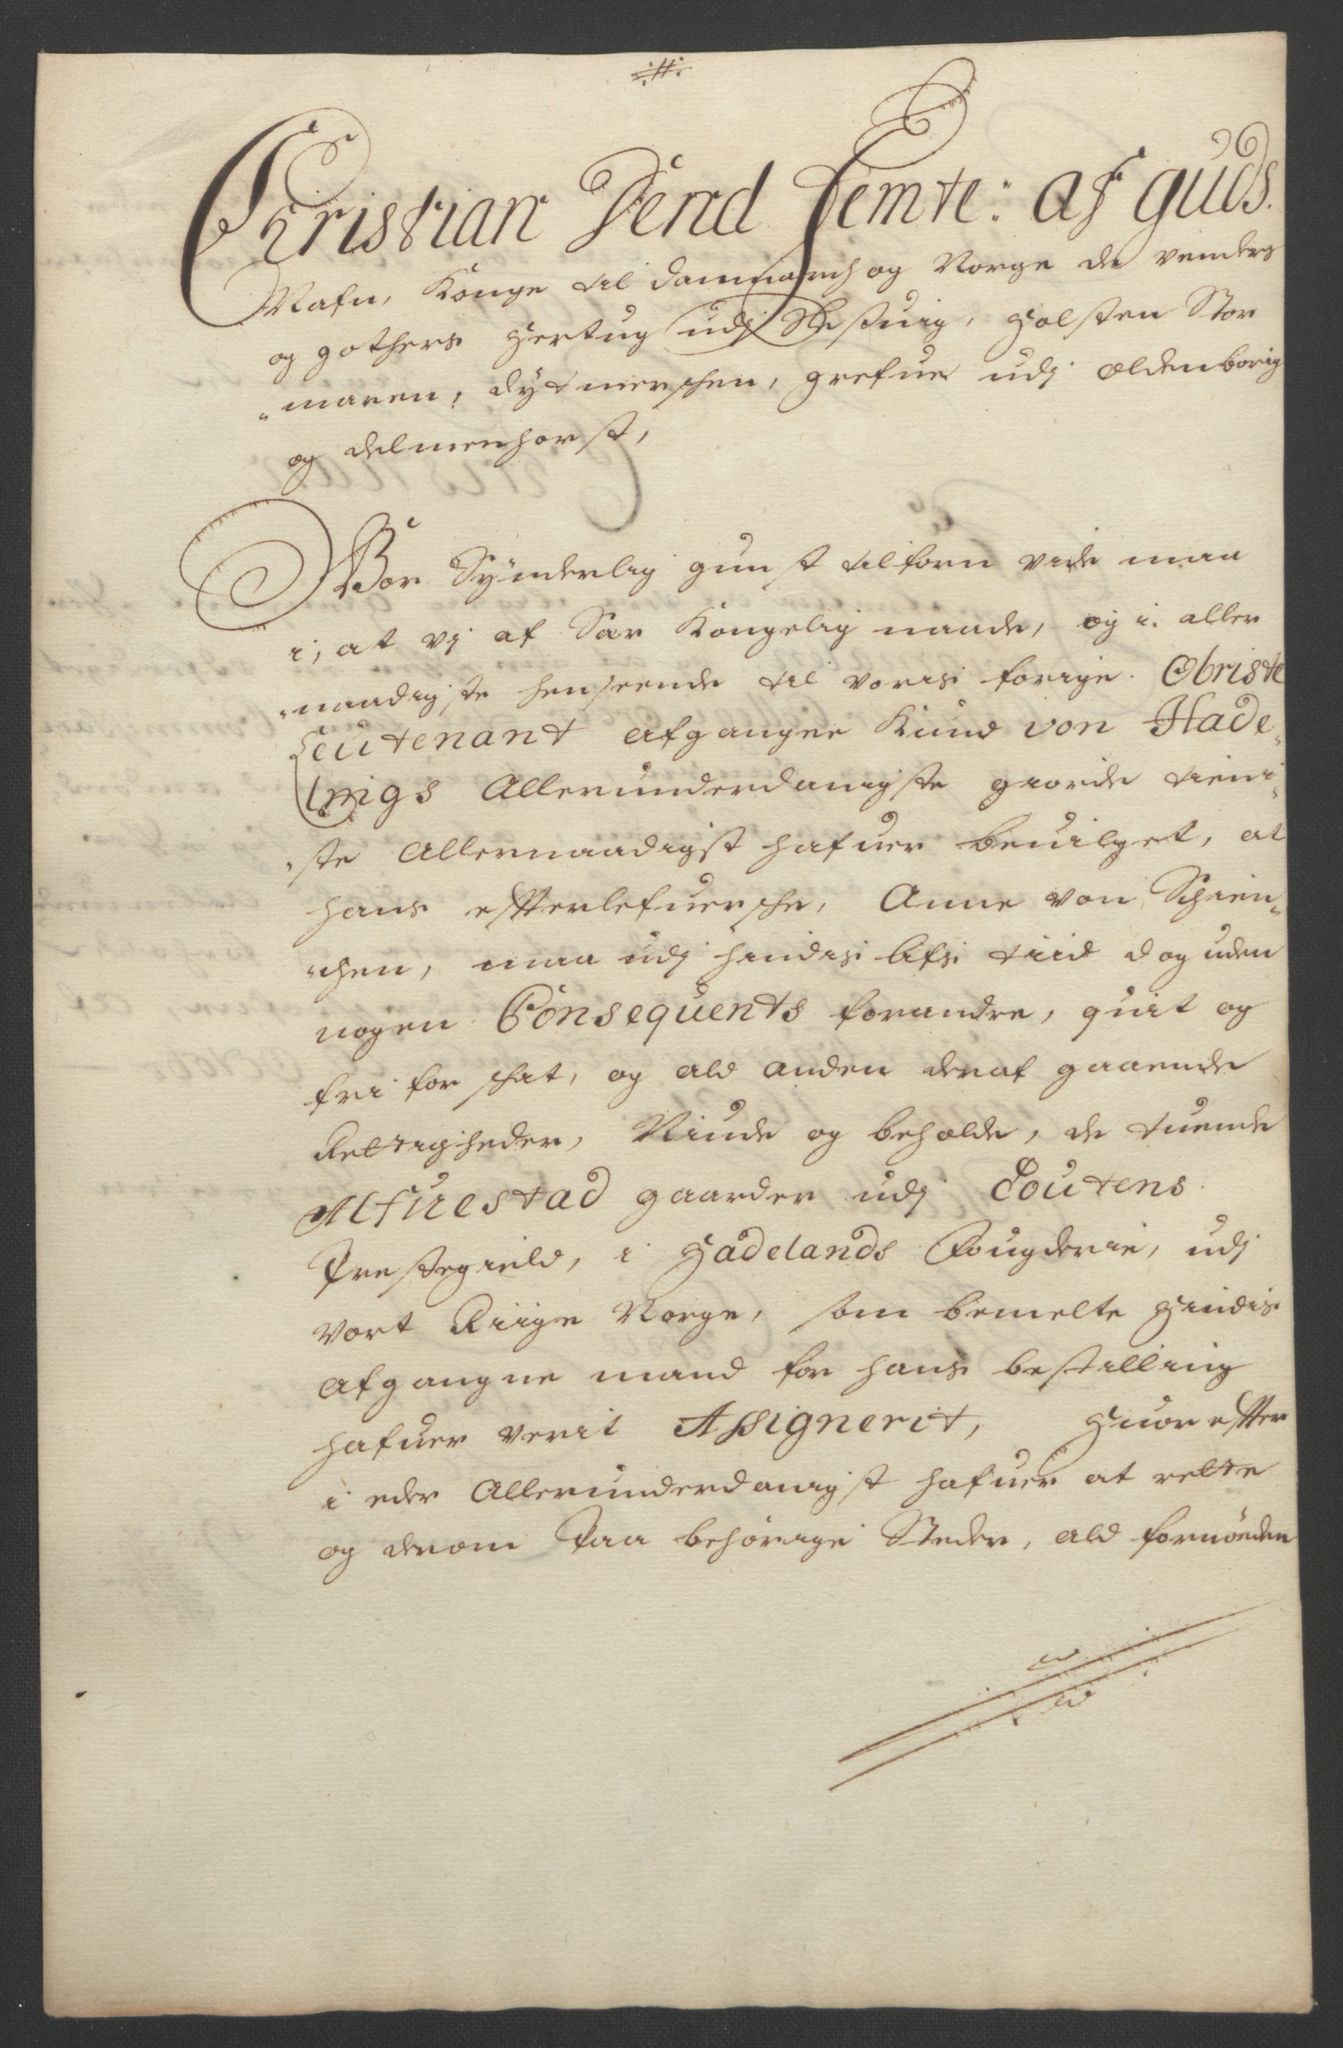 Christian Dend Femte: af Guds
Naade, Konge til Danmarch og Norge de venders
og gothers Hertug udj Slesuig, Holsten Stor
maren, Dytmerschen, Grefue udj Oldenborig
og Delmenhorst,
Vor Synderlig gunst tilforn vide maa
i, at vj af Sær Kongelig naade, og i aller
naadigste henseende til voris forige Obriste
Leutenant afgangne Knud von Hade-
lnigs Allerunderdanigste giorde tieni-
ste Allernaadigst hafuer beuilget, at
hans efterlefuersche, Anne von Schien-
chen, maa udj hindis lifs tiid dog uden
nogen Consequents forandre, quit og
fri for schat, og ald anden deraf gaaende
Rettigheder, Niude og beholde, de tuende
Alfuestad gaarder udj Toutens
Prestegield, i Hadelands Fougderie, udj
vort Riige Norge, som bemelte hindis
afgangne mand for hans bestilling
hafuer verit Assignerit, Huorefter
i eder Allerunderdanigst hafuer at rette
og derom Paa behørige Steder, ald fornøden